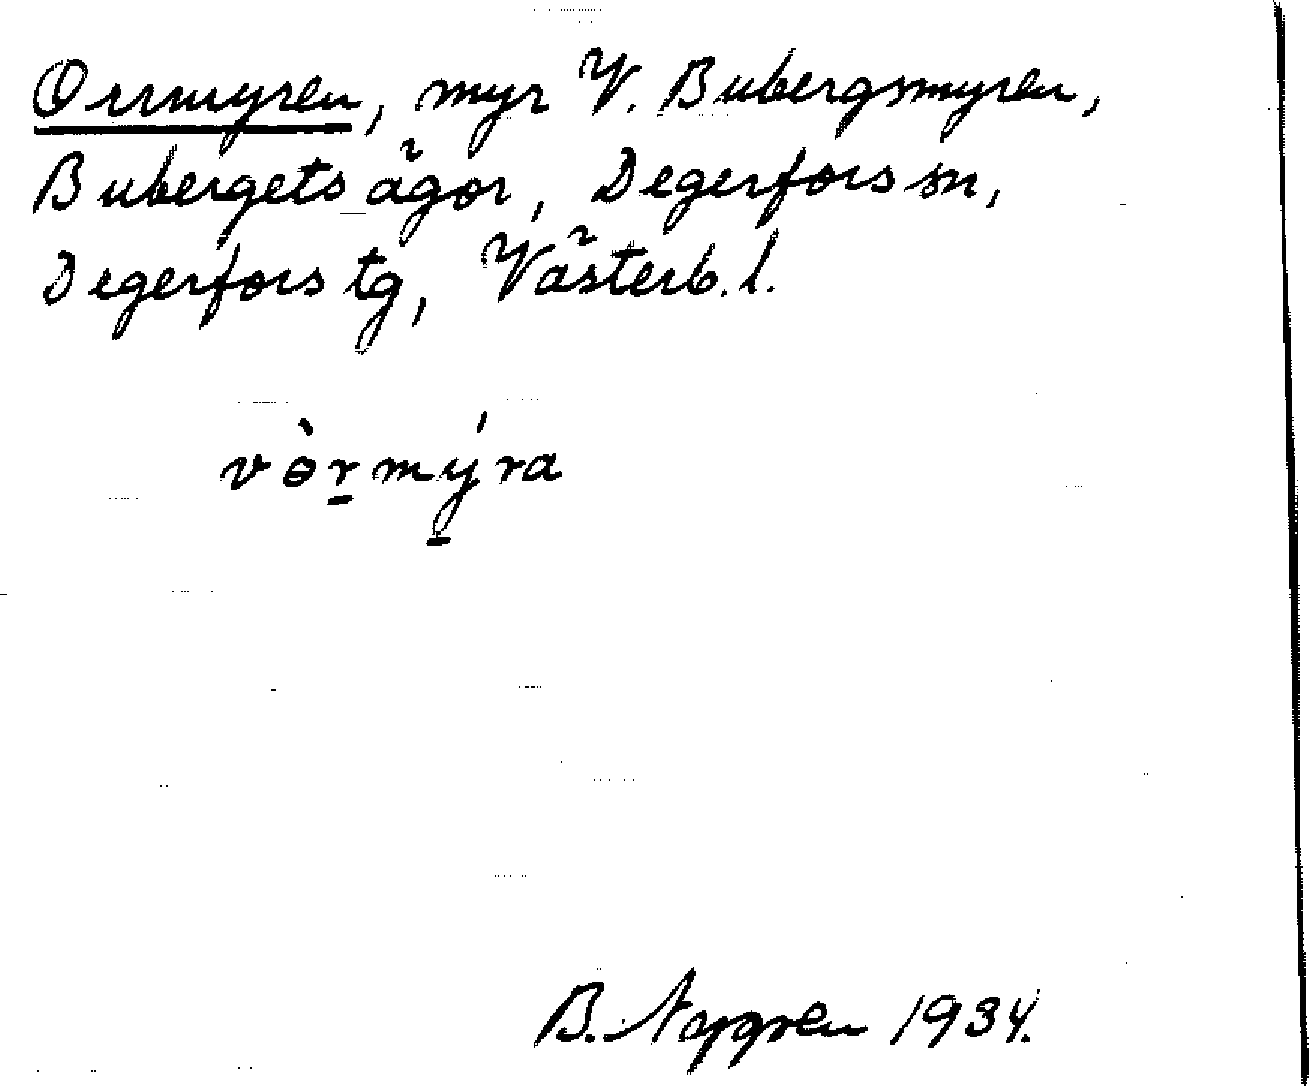 Orrmyren, myr V. Bubergsmyren,
Bubergets ägor, Degerfors sn,
Degerfors tg, Västerb. l.
vɵ̀r̠mý̠ra
B. 1934.